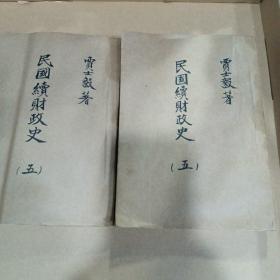 賈士毅著
民國續財政史
(五)
賈士毅著
民國續財政史
(五)